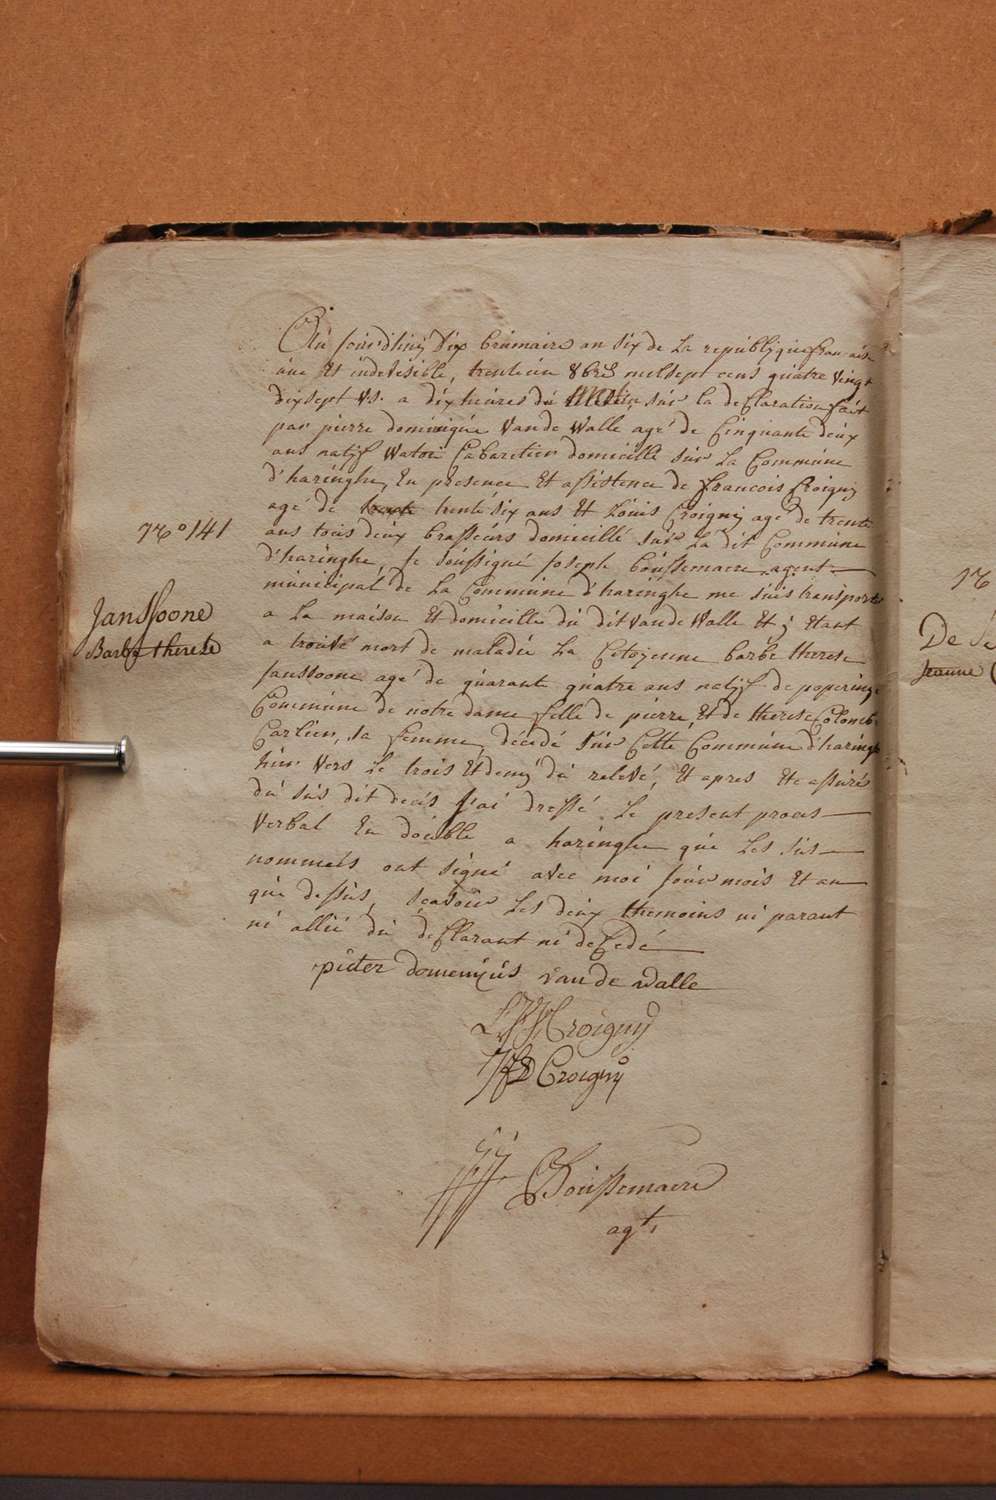 Au jourd'hui dix brumaire an six de La republique francaise
une Et indevisible, trente un 8bre milsept cens quatre vingt
dixsept vs. a dix heures du matin sur la declaration fait
par pierre dominique Vande Walle agé de Cinquante deux
ans natif Watou Cabaretier domicillé sur La Commune
d'haringhe, En presence Et assistence de francois Croigny
agé de trente six ans Et Louis Croigny age de trente
ans tous deux brasseurs domicillé sur La dit Commune
N.º 141
d'haringhe, Je soussigné Joseph Boussemaere agent
municipal de La Commune d'haringhe me suis transporté
Janssoone
a La maison Et domicille du dit vande Walle Et y Etant
Barbe therese
a trouvé mort de maladie La Citoyenne barbe therese
Janssoone agé de quarant quatre ans natif de poperinge
Commune de notre dame fille de pierre, Et de therese Colombe
Carlier, sa femme, décédé sur Cette Commune d'haringhe
hier vers Le trois Et demy du relevé, Et apres Etc assurés
du sus dit deces J'ai dressé Le present proces
verbal En double a haringhe que Les sus
nommeés ont signé avec moi jour mois Et an
que dessus, scavoir Les deux themoins ni parant
ni allié du declarant ni decedé
pieter domenicus van de walle
Croigny
Croigny
Boussemaere
agt.
De
Jeanne